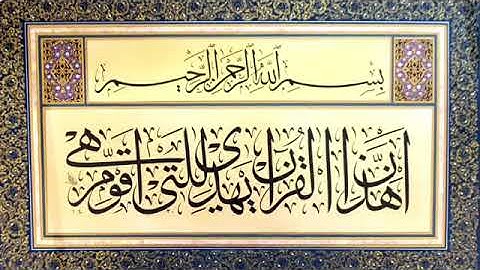 بِسْمِ اللَّهِ الرَّحْمَٰنِ الرَّحِيمِ
إِنَّ هَٰذَا الْقُرْآنَ يَهْدِي لِلَّتِي هِيَ أَقْوَمُ